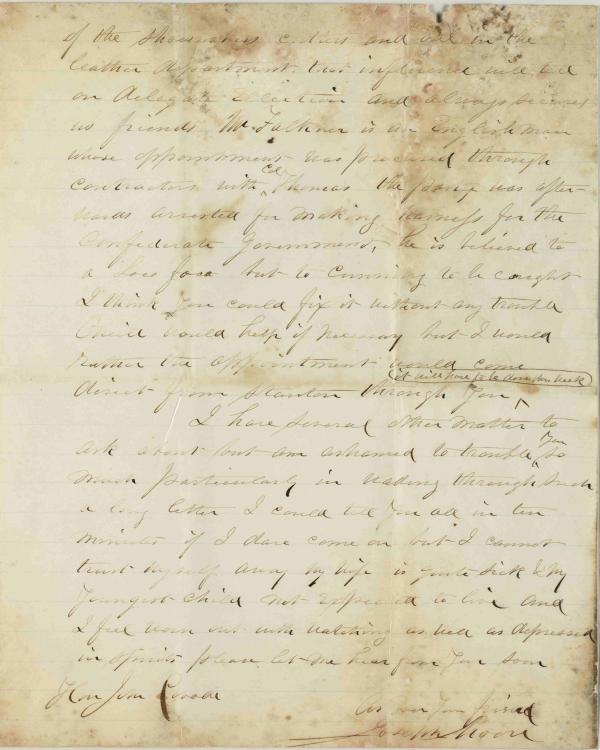 of the Shoemakers cutters and all in the
leather department. that influence will tell
on delegate Election and always secures
us friends Mr Falkner is an Englishman
whose appointment was procured through
contractors with Col Thomas the party was after-
wards arrested for making harness for the
Confederate Government, he is believed to
a Loco foco but to cunning to be caught
I think you could fix it without any trouble
would help if necessary but I would
rather the appointment would come
direct from Stanton through You
it will have to be done this week
I have several other matter to
ask about but am ashamed to trouble You so
much particularly in reading through such
a long letter I could tell You all in ten
minutes if I dare come on but I cannot
trust myself away my wife is quite sick & my
Youngest child not expected to live and
I feel worn out with watching as well as depressed
in spirits please let me hear from You soon
Hon John Covode
As ever Your friend
Joseph Moore